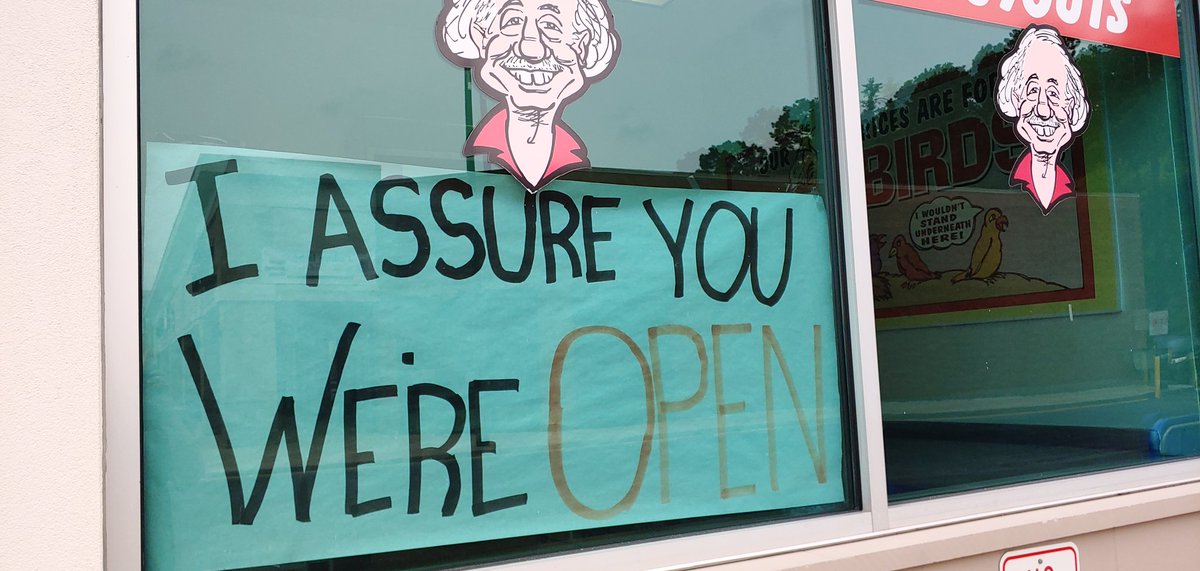 I ASSURE YOU
WE'RE OPEN
RICES ARE FO
BIRDS
I WOULDN'T
STAND
UNDERNEATH
HERE!
OUTS